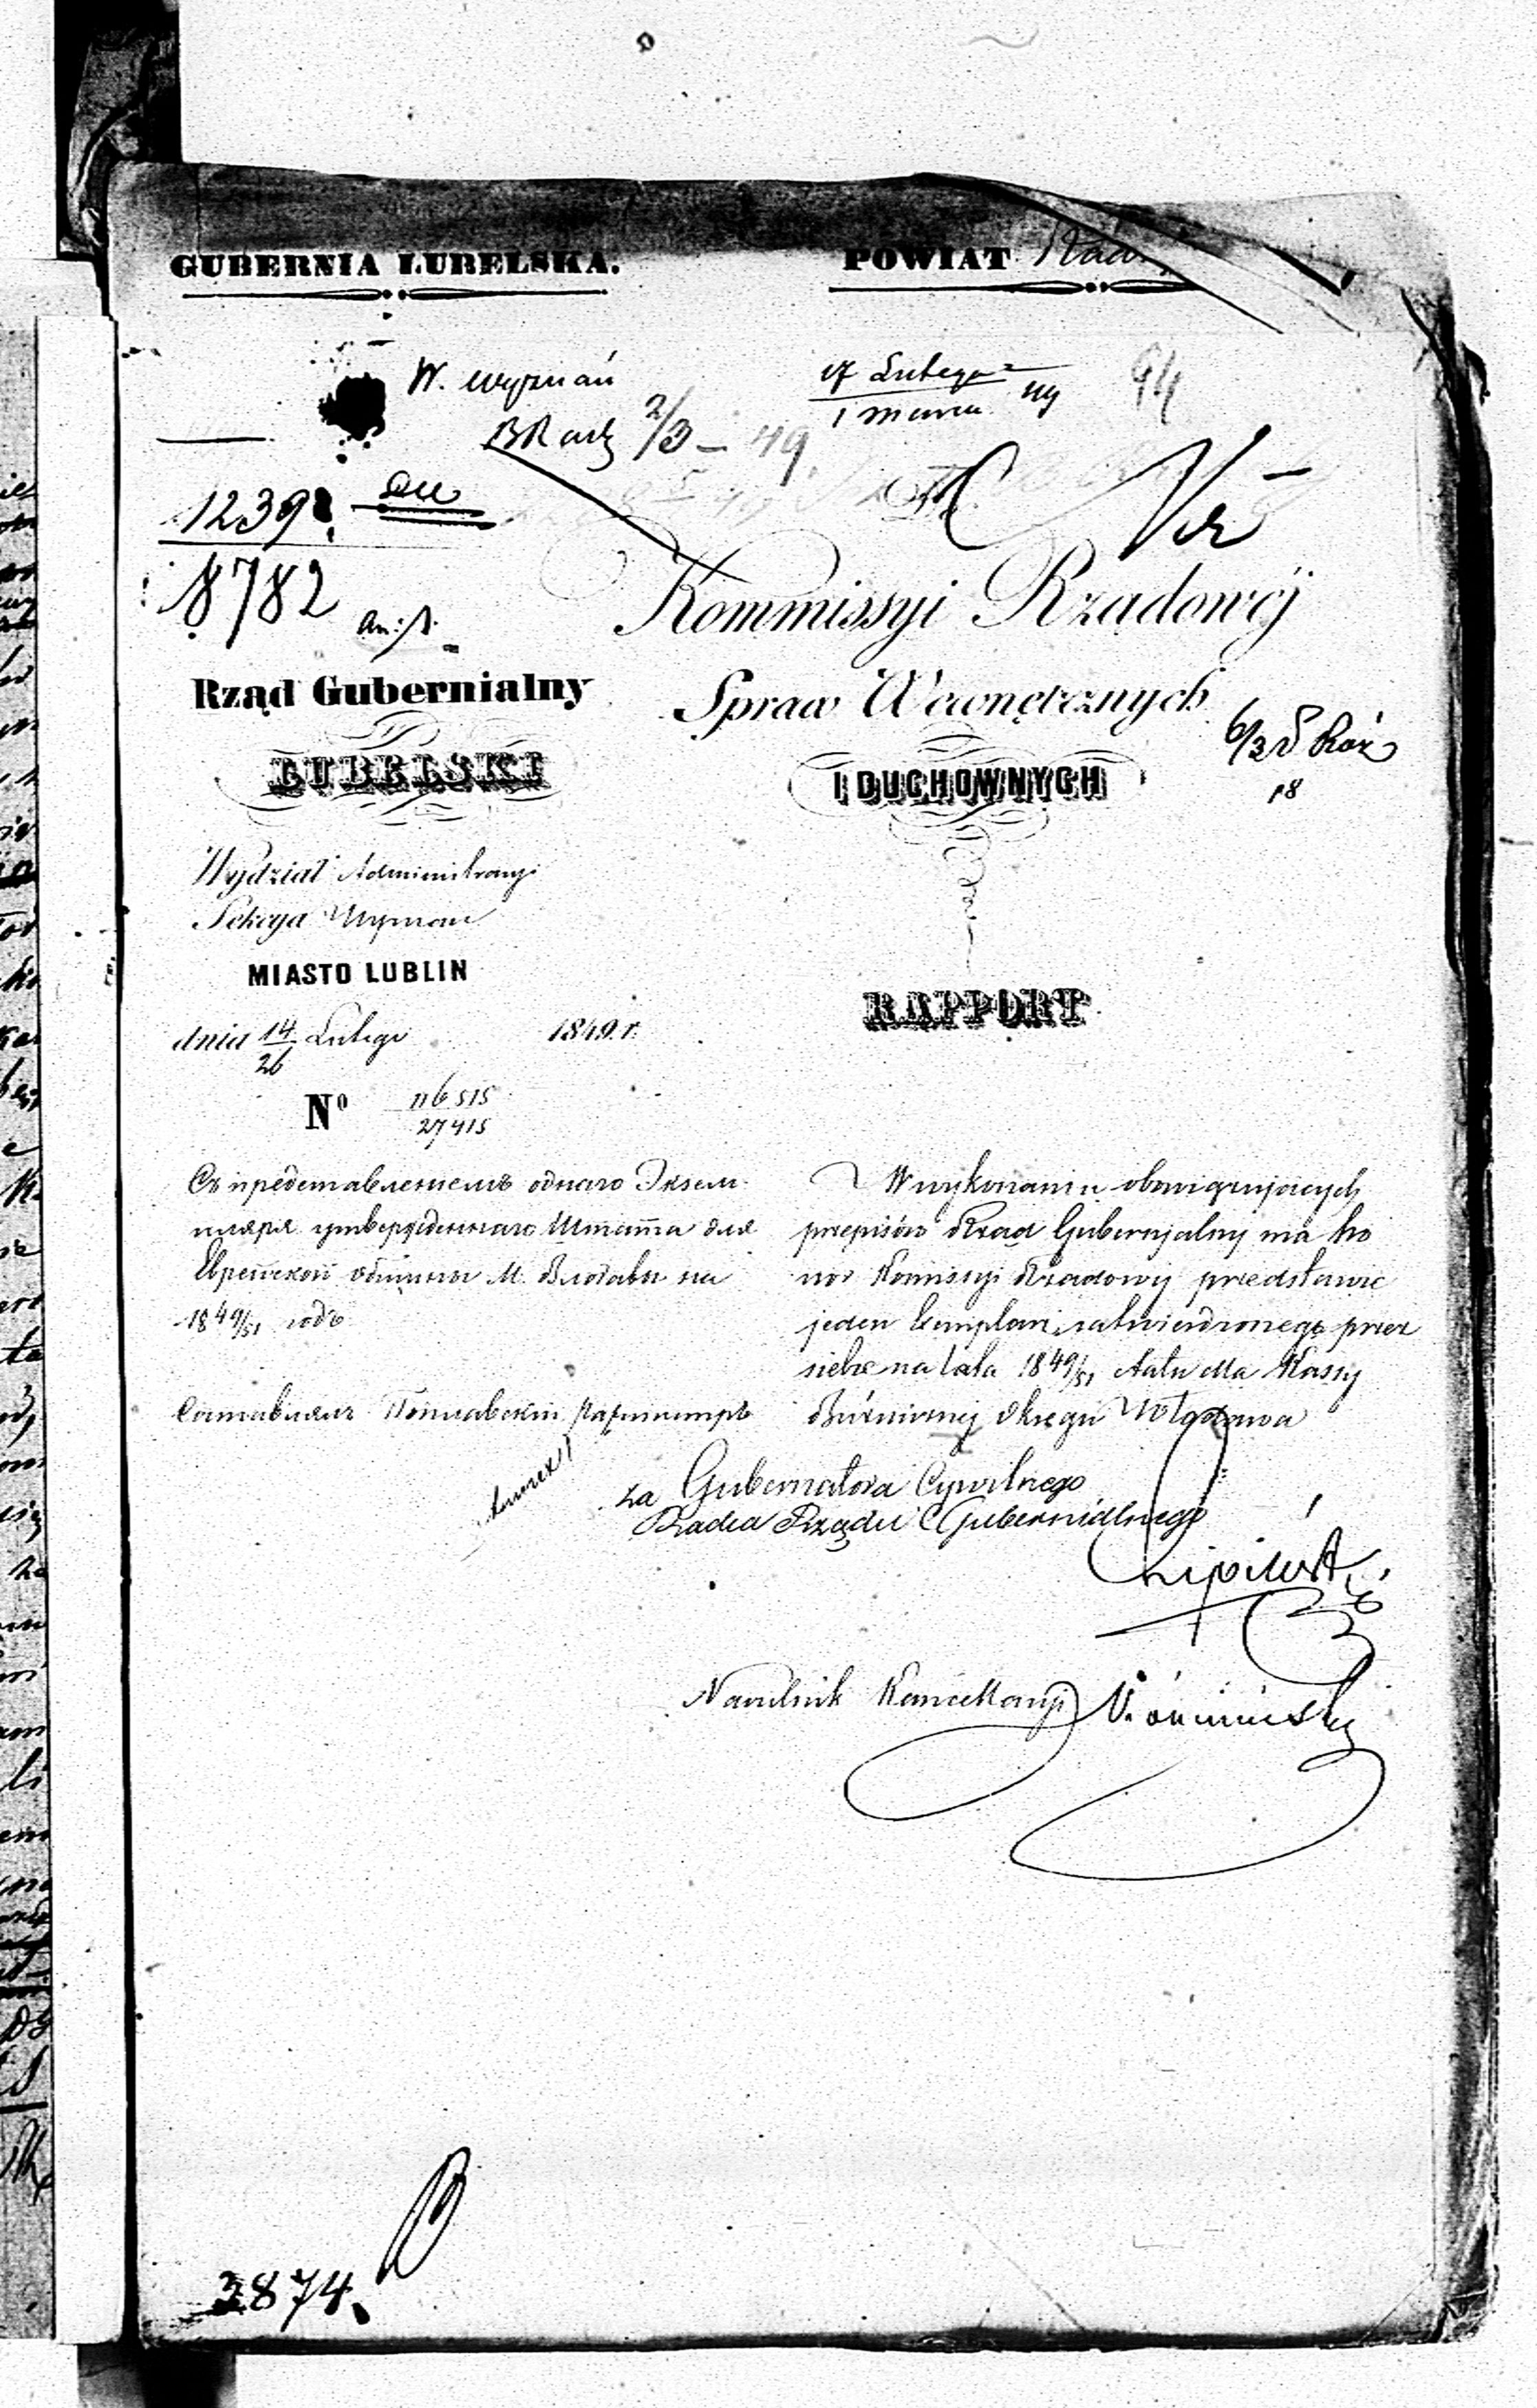 GUBERNIA LUBELSKA.
POWIAT
W. wyznań
17 Lutego
1 Marca 49
94
2/3 – 49
1239
8782
Kommissyi Rządowéj
Rząd Gubernialny
Spraw Wewnętrznych
LUBELSKI
I DUCHOWNYCH
6/3
18
Wydział Administracyi
Sekcya Wyznań
MIASTO LUBLIN
RAPPORT
dnia 14/26 Lutego 1849. r.
Nº 116515
27415
Съ представленіемъ одного Экзем-
пляра утвержденнаго Штата для
Еврейской общины М. Влодавы на
1849/51 годъ
Составлялъ
W wykonaniu obowiązujących
przepisów Rząd Gubernjalny ma ho
nor Komissyi Rządowéj przedstawić
jeden Exemplarz zatwierdzonego przez
siebie na lata 1849/51 Etatu dla Kassy
Bóżniczej Okręgu Włodawa
za Gubernatora Cywilnego
Radca Rządu Gubernialnego
Naczelnik Kancellaryi
3874.